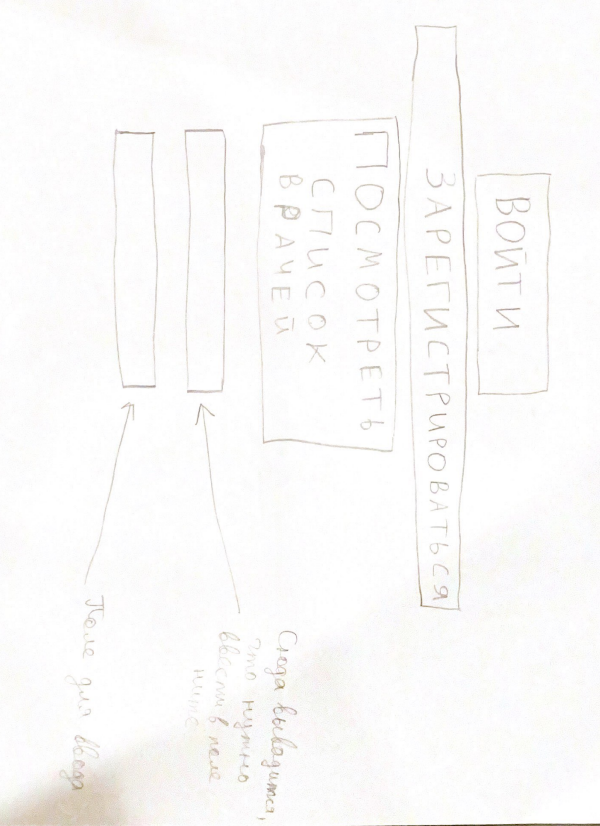 ВОЙТИ
ЗАРЕГИСТРИРОВАТЬСЯ
ПОСМОТРЕТЬ
СПИСОК
ВРАЧЕЙ
Сюда выводится,
что нужно
ввести в поле
ниже
Поле для ввода